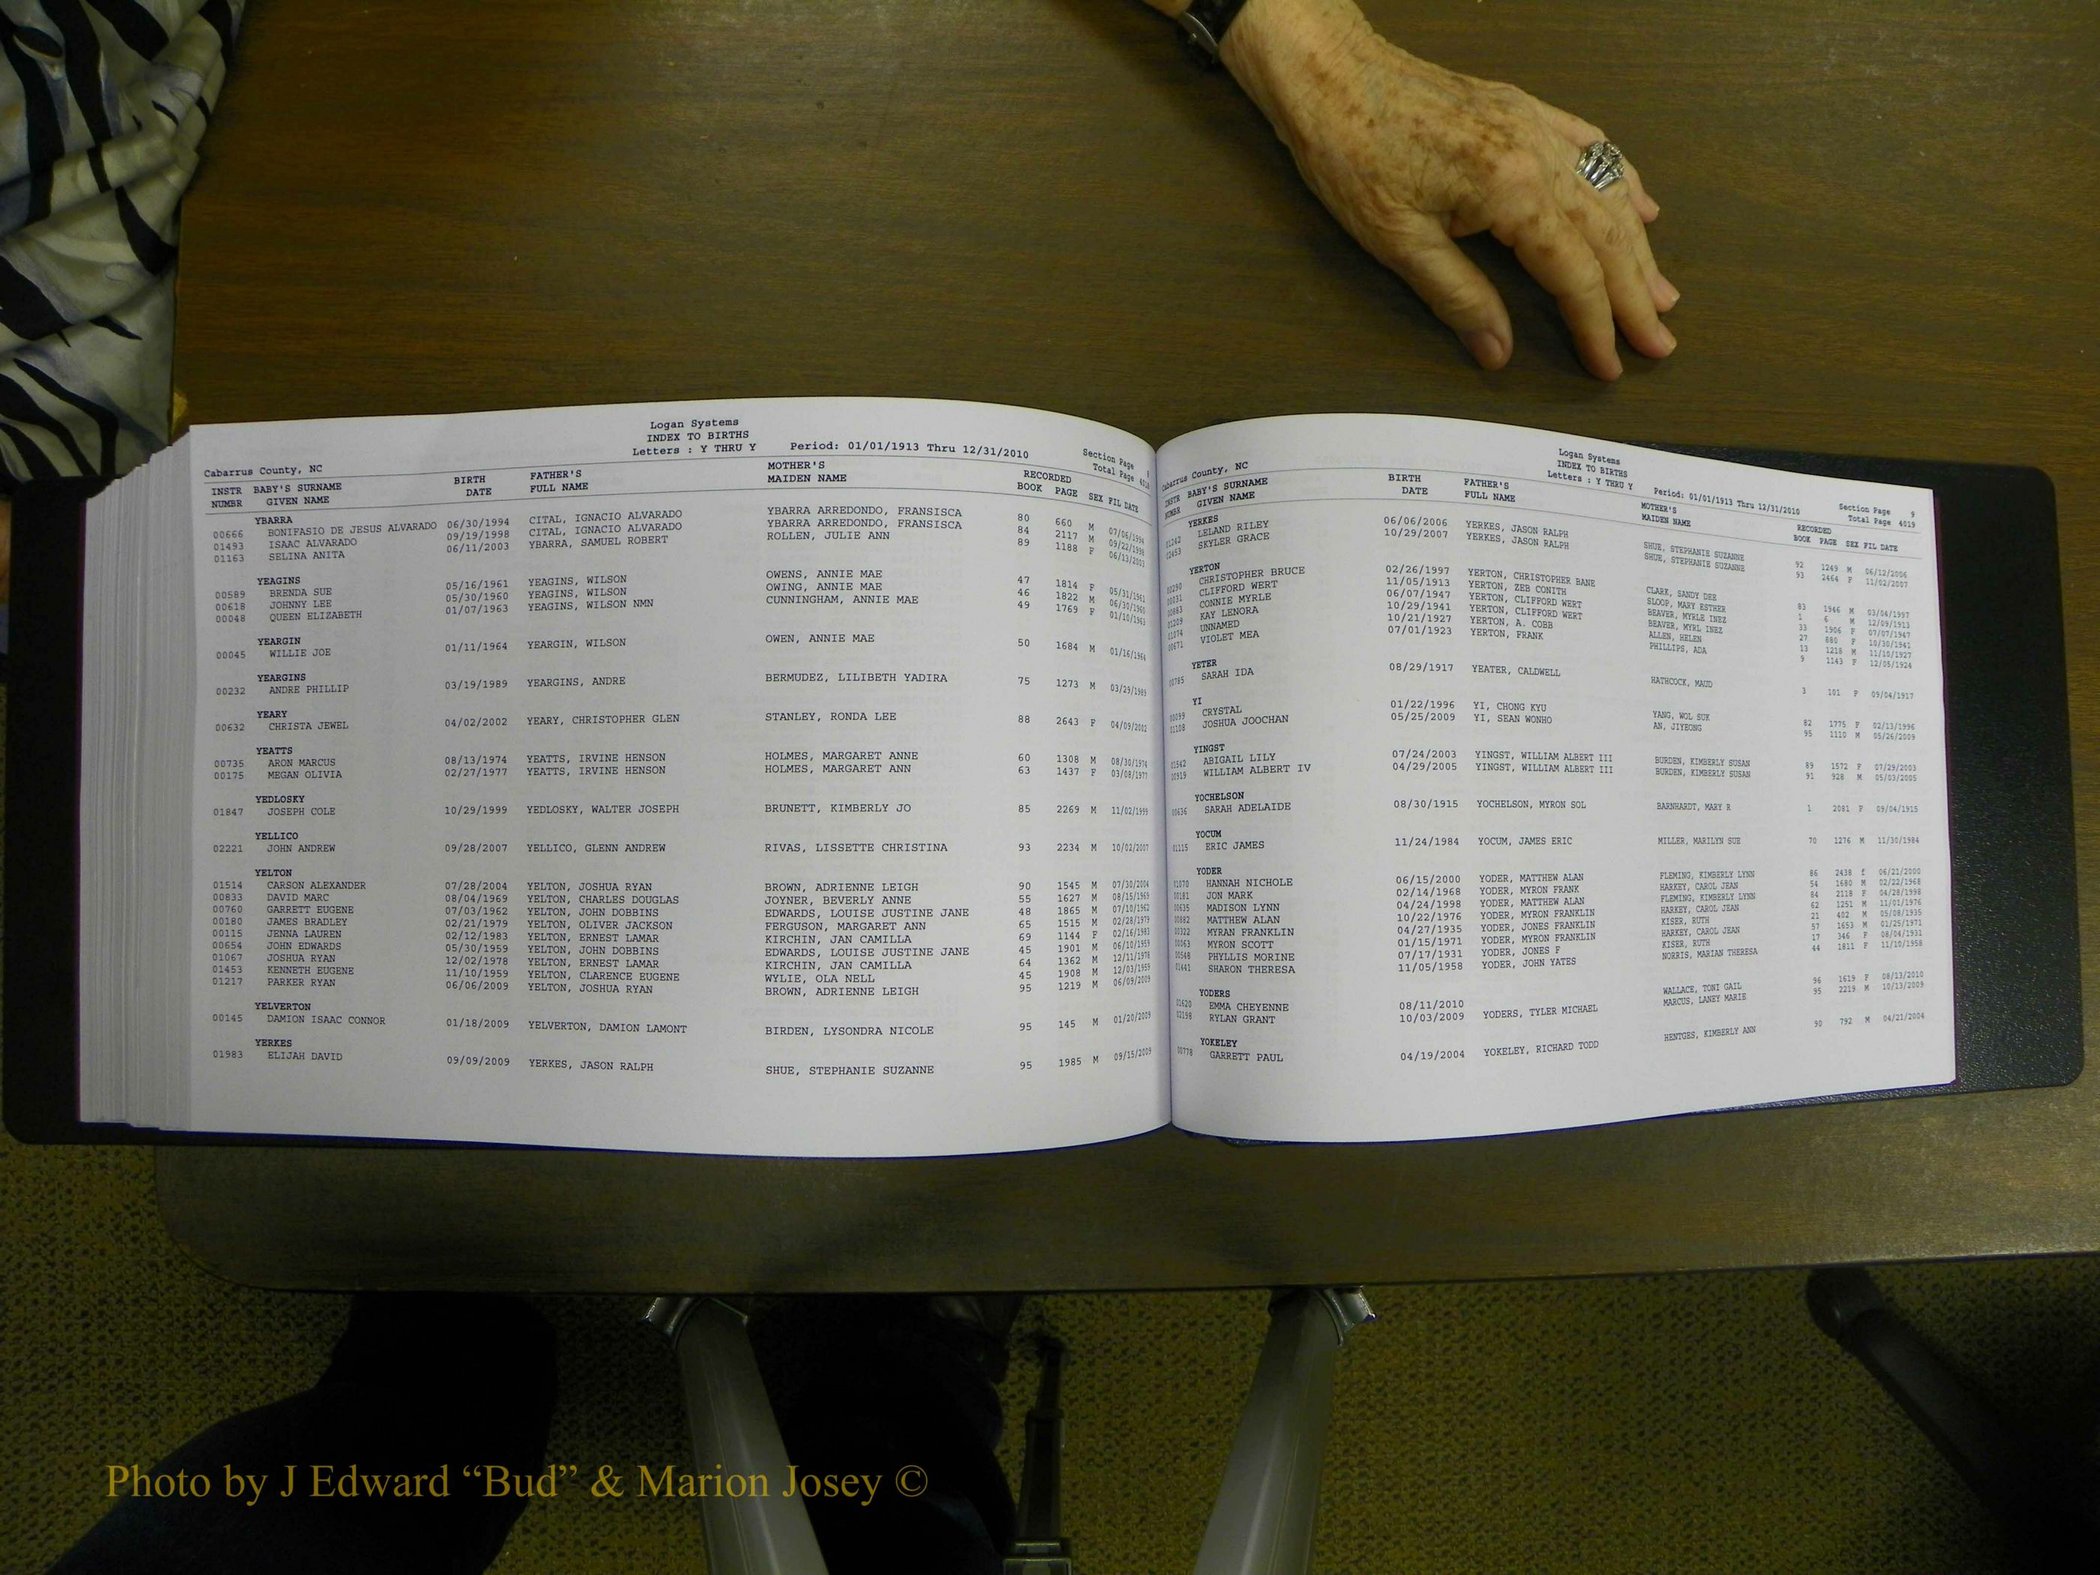 Logan Systems
INDEX TO BIRTHS
Letters : Y THRU Y Period: 01/01/1913 Thru 12/31/2010 Section Page
Cabarrus County, NC Total Page
INSTR NUMBR BABY'S SURNAME GIVEN NAME BIRTH DATE FATHER'S FULL NAME MOTHER'S MAIDEN NAME RECORDED BOOK PAGE SEX FIL DATE
YBARRA
00666 BONIFASIO DE JESUS ALVARADO 06/30/1994 CITAL, IGNACIO ALVARADO YBARRA ARREDONDO, FRANSISCA 80 660 M 07/06/1994
01493 ISAAC ALVARADO 09/19/1998 CITAL, IGNACIO ALVARADO YBARRA ARREDONDO, FRANSISCA 84 2117 M 09/22/1998
01163 SELINA ANITA 06/11/2003 YBARRA, SAMUEL ROBERT ROLLEN, JULIE ANN 89 1188 F 06/13/2003
YEAGINS
00589 BRENDA SUE 05/16/1961 YEAGINS, WILSON OWENS, ANNIE MAE 47 1814 F 05/31/1961
00618 JOHNNY LEE 05/30/1960 YEAGINS, WILSON OWING, ANNIE MAE 46 1822 M 06/30/1960
00048 QUEEN ELIZABETH 01/07/1963 YEAGINS, WILSON NMN CUNNINGHAM, ANNIE MAE 49 1769 F 01/10/1963
YEARGIN
00045 WILLIE JOE 01/11/1964 YEARGIN, WILSON OWEN, ANNIE MAE 50 1684 M 01/16/1964
YEARGINS
00232 ANDRE PHILLIP 03/19/1989 YEARGINS, ANDRE BERMUDEZ, LILIBETH YADIRA 75 1273 M 03/29/1989
YEARY
00632 CHRISTA JEWEL 04/02/2002 YEARY, CHRISTOPHER GLEN STANLEY, RONDA LEE 88 2643 F 04/09/2002
YEATTS
00735 ARON MARCUS 08/13/1974 YEATTS, IRVINE HENSON HOLMES, MARGARET ANNE 60 1308 M 08/30/1974
00175 MEGAN OLIVIA 02/27/1977 YEATTS, IRVINE HENSON HOLMES, MARGARET ANN 63 1437 F 03/08/1977
YEDLOSKY
01847 JOSEPH COLE 10/29/1999 YEDLOSKY, WALTER JOSEPH BRUNETT, KIMBERLY JO 85 2269 M 11/02/1999
YELLICO
02221 JOHN ANDREW 09/28/2007 YELLICO, GLENN ANDREW RIVAS, LISSETTE CHRISTINA 93 2234 M 10/02/2007
YELTON
01514 CARSON ALEXANDER 07/28/2004 YELTON, JOSHUA RYAN BROWN, ADRIENNE LEIGH 90 1545 M 07/30/2004
00833 DAVID MARC 08/04/1969 YELTON, CHARLES DOUGLAS JOYNER, BEVERLY ANNE 55 1627 M 08/15/1969
00760 GARRETT EUGENE 07/03/1962 YELTON, JOHN DOBBINS EDWARDS, LOUISE JUSTINE JANE 48 1865 M 07/10/1962
00180 JAMES BRADLEY 02/21/1979 YELTON, OLIVER JACKSON FERGUSON, MARGARET ANN 65 1515 M 02/28/1979
00115 JENNA LAUREN 02/12/1983 YELTON, ERNEST LAMAR KIRCHIN, JAN CAMILLA 69 1144 F 02/16/1983
00654 JOHN EDWARDS 05/30/1959 YELTON, JOHN DOBBINS EDWARDS, LOUISE JUSTINE JANE 45 1901 M 06/10/1959
01067 JOSHUA RYAN 12/02/1978 YELTON, ERNEST LAMAR KIRCHIN, JAN CAMILLA 64 1362 M 12/11/1978
01453 KENNETH EUGENE 11/10/1959 YELTON, CLARENCE EUGENE WYLIE, OLA NELL 45 1908 M 12/03/1959
01217 PARKER RYAN 06/06/2009 YELTON, JOSHUA RYAN BROWN, ADRIENNE LEIGH 95 1219 M 06/09/2009
YELVERTON
00145 DAMION ISAAC CONNOR 01/18/2009 YELVERTON, DAMION LAMONT BIRDEN, LYSONDRA NICOLE 95 145 M 01/20/2009
YERKES
01983 ELIJAH DAVID 09/09/2009 YERKES, JASON RALPH SHUE, STEPHANIE SUZANNE 95 1985 M 09/15/2009
Logan Systems
INDEX TO BIRTHS
Letters : Y THRU Y Period: 01/01/1913 Thru 12/31/2010 Section Page 9
Cabarrus County, NC Total Page 4019
INSTR NUMBR BABY'S SURNAME GIVEN NAME BIRTH DATE FATHER'S FULL NAME MOTHER'S MAIDEN NAME RECORDED BOOK PAGE SEX FIL DATE
YERKES
01242 LELAND RILEY 06/06/2006 YERKES, JASON RALPH SHUE, STEPHANIE SUZANNE 92 1249 M 06/12/2006
02453 SKYLER GRACE 10/29/2007 YERKES, JASON RALPH SHUE, STEPHANIE SUZANNE 93 2464 F 11/02/2007
YERTON
00290 CHRISTOPHER BRUCE 02/26/1997 YERTON, CHRISTOPHER BANE CLARK, SANDY DEE 83 1946 M 03/04/1997
00031 CLIFFORD WERT 11/05/1913 YERTON, ZEB CONITH SLOOP, MARY ESTHER 1 6 M 12/09/1913
00883 CONNIE MYRLE 06/07/1947 YERTON, CLIFFORD WERT BEAVER, MYRLE INEZ 33 1906 F 07/07/1947
01209 KAY LENORA 10/29/1941 YERTON, CLIFFORD WERT BEAVER, MYRL INEZ 27 880 F 10/30/1941
01074 UNNAMED 10/21/1927 YERTON, A. COBB ALLEN, HELEN 13 1218 M 11/10/1927
00671 VIOLET MEA 07/01/1923 YERTON, FRANK PHILLIPS, ADA 9 1143 F 12/05/1924
YETER
00785 SARAH IDA 08/29/1917 YEATER, CALDWELL HATHCOCK, MAUD 3 101 F 09/04/1917
YI
00099 CRYSTAL 01/22/1996 YI, CHONG KYU YANG, WOL SUK 82 1775 F 02/13/1996
01108 JOSHUA JOOCHAN 05/25/2009 YI, SEAN WONHO AN, JIYEONG 95 1110 M 05/26/2009
YINGST
01542 ABIGAIL LILY 07/24/2003 YINGST, WILLIAM ALBERT III BURDEN, KIMBERLY SUSAN 89 1572 F 07/29/2003
00919 WILLIAM ALBERT IV 04/29/2005 YINGST, WILLIAM ALBERT III BURDEN, KIMBERLY SUSAN 91 928 M 05/03/2005
YOCHELSON
00636 SARAH ADELAIDE 08/30/1915 YOCHELSON, MYRON SOL BARNHARDT, MARY R 1 2081 F 09/04/1915
YOCUM
01115 ERIC JAMES 11/24/1984 YOCUM, JAMES ERIC MILLER, MARILYN SUE 70 1276 M 11/30/1984
YODER
01070 HANNAH NICHOLE 06/15/2000 YODER, MATTHEW ALAN FLEMING, KIMBERLY LYNN 86 2438 f 06/21/2000
00181 JON MARK 02/14/1968 YODER, MYRON FRANK HARKEY, CAROL JEAN 54 1680 M 02/22/1968
00635 MADISON LYNN 04/24/1998 YODER, MATTHEW ALAN FLEMING, KIMBERLY LYNN 84 2118 F 04/28/1998
00882 MATTHEW ALAN 10/22/1976 YODER, MYRON FRANKLIN HARKEY, CAROL JEAN 62 1251 M 11/01/1976
00322 MYRAN FRANKLIN 04/27/1935 YODER, JONES FRANKLIN KISER, RUTH 21 402 M 05/08/1935
00063 MYRON SCOTT 01/15/1971 YODER, MYRON FRANKLIN HARKEY, CAROL JEAN 57 1653 M 01/25/1971
00548 PHYLLIS MORINE 07/17/1931 YODER, JONES F KISER, RUTH 17 346 F 08/04/1931
01441 SHARON THERESA 11/05/1958 YODER, JOHN YATES NORRIS, MARIAN THERESA 44 1811 F 11/10/1958
YODERS
01620 EMMA CHEYENNE 08/11/2010 WALLACE, TONI GAIL 96 1619 F 08/13/2010
02198 RYLAN GRANT 10/03/2009 YODERS, TYLER MICHAEL MARCUS, LANEY MARIE 95 2219 M 10/13/2009
YOKELEY
00778 GARRETT PAUL 04/19/2004 YOKELEY, RICHARD TODD HENTGES, KIMBERLY ANN 90 792 M 04/21/2004
Photo by J Edward “Bud” & Marion Josey ©